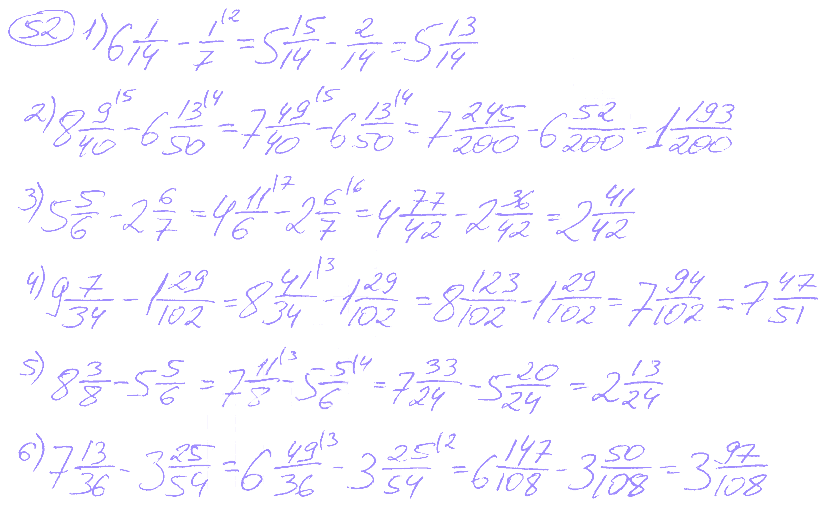 52 1) 6 1/14 - 1/7 |2 = 5 15/14 - 2/14 = 5 13/14
2) 8 9/40 |5 - 6 13/50 |4 = 7 49/40 |5 - 6 13/50 |4 = 7 245/200 - 6 52/200 = 1 193/200
3) 5 5/6 - 2 6/7 = 4 11/6 |7 - 2 6/7 |6 = 4 77/42 - 2 36/42 = 2 41/42
4) 9 7/34 - 1 29/102 = 8 41/34 |3 - 1 29/102 = 8 123/102 - 1 29/102 = 7 94/102 = 7 47/51
5) 8 3/8 - 5 5/6 = 7 11/8 |3 - 5 5/6 |4 = 7 33/24 - 5 20/24 = 2 13/24
6) 7 13/36 - 3 25/54 = 6 49/36 |3 - 3 25/54 |2 = 6 147/108 - 3 50/108 = 3 97/108